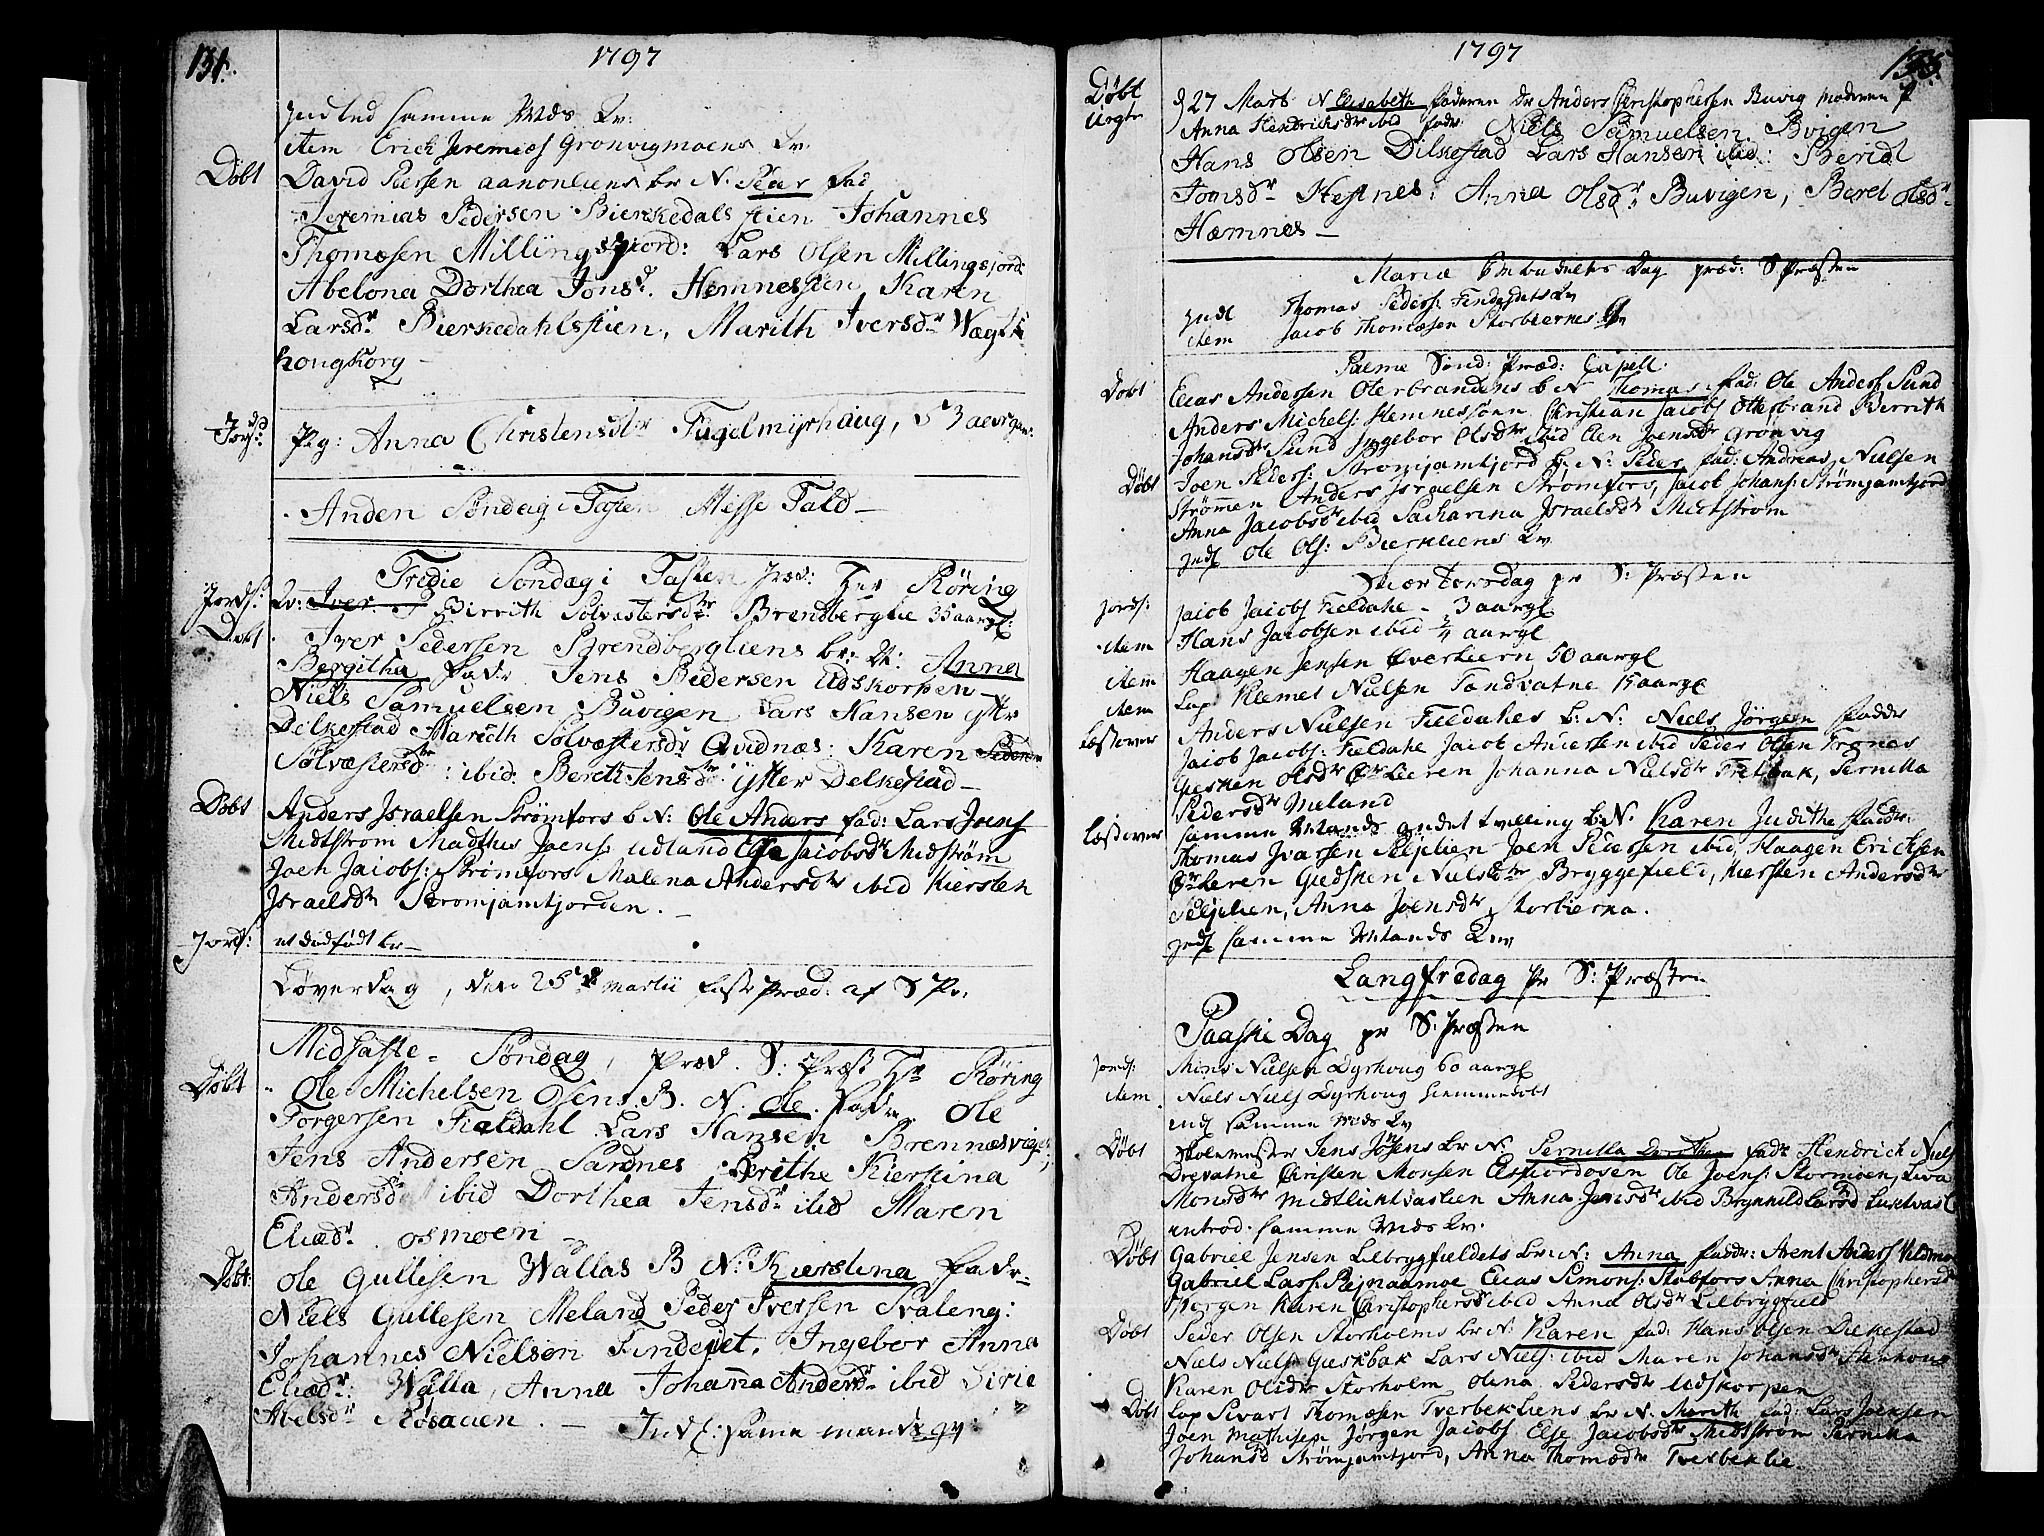 134.
1797
Indled samme Mds Qv:
item Erich Jeremias Grønvigmoens Qv.
Døbt David Persen aanonliens br N. Peder fad
Jeremias Pedersen Bierkedalsstien Johannes
Thomæsen Millingsfjord: Lars Olsen Millingsjord:
Abelona Dorthea Jonsd. Hemnesstien, Karen
Larsdr Bierkedahlsstien, Marith Iversdr Wægt
hongkorg
Jords: P.g: Anna Christensdtr Fugelmyrhaug, 3 aar gl:
Anden Søndag i Fasten Messe Fald
Tredie Søndag i Fasten Præd: Her Røring
Jords: Qv: Iver Birrith Solvestersdr: Brendberglie 35 aar gl:
Døbt Iver Pedersen Brendbergliens br: N: Anna
Bergitha fadr Jens Pedersen Udskorpen
Niels Samuelsen Buvigen Lars Hansen ytter
Delkestad Marith Solvæstersdr Qvidnæs: Karen
Solvæstersdr: ibid. Bereth Jensdr: ytter Delkestad
Døbt Anders Israelsen Strømfors b N: Ole Anders fad: Lars Joens
Midtstrøm Madthis Joens: udland Else Jacobsdr Midstrøm
Joen Jacobs: Strømfors Malena Andersdr ibid Kiersten
Israelsdr Strømjamtjorden.
Jords: et dødfødt br
Løverdag, den 25de Martii Faste Præd: af S Pr:
Midfaste Søndag, Præd. S: Præst Hr Røring
Døbt Ole Michelsen Osen B. N. Ole Fadr Ole
Torgersen Fieldahl Lars Hansen Brennæsvig:
Jens Andersen Sandnes Berithe Kierstina
Andersdr ibid Dorthea Jensdr ibid Maren
Eliædr. osmoen
Døbt: Ole Gullesen Wallas B N: Kierstina Fadr
Niels Gullesen Meland Peder Iversen Svaleng:
Johannes Nielsen Findejet, Ingebor Anna
Eliædr: Walla, Anna Johanna Andersdr ibid Sirie
Abelsdr Røsaaen. — Indl: samme mands qv:
1797
135.
Døbt
Uegte
d 27 Mart N Elisabeth faderen er Anders Christophersen Buvig Moderen P
Anna Hendrichsdr ibid fadr: Niels Samuelsen Bvigen
Hans Olsen Dilkestad Lars Hansen ibid: Berid
Tomsdr Hestnes: Anna Olsdr: Buvigen, Beret Olsdr
Hæmnes
Mariæ Bebudelses Dag præd: S: Præsten
Indl Thomas Peders: Findejdets Qv
item Jacob Thomæsen Storbiernes Qv
Palme Sønd: Præd: Capell:
Døbt Elias Andersen Oterbrandens b N Thomas fad: Ole Anders: Sund
Anders Michels: Hemnessøen Christian Jacobs Otterbrand Berrith
Johansdr Sund Ingebor Olsdr ibid Elen Joensdr Grønvig
Døbt Joen Peders: Strømjamtjord b: N: Peder fad: Andreas Nielsen
Strømmen Anders Israelsen Strømfors, Jacob Johans: Strømjamtjord
Anna Jacobsdr ibid Sacharina Israelsdr Midtstrøm
Indl Ole Ols: Bierkliens Qv
Skier Torsdag pr S: Præsten
Jords: Jacob Jacobs Fieldahl — 3 aar gl
item Hans Jacobsen ibid 3/4 aar gl
item Haagen Jensen Øverleern 50 aar gl
item Lap Klemet Nielsen Tandvatne 15 aar gl
Læst over Anders Nielsen Fieldahls b: N: Niels Jørgen Faddr
Jacob Jacobs: Fieldahl Jacob Andersen ibid Peder Olsen Frønes
Giesken Olsdr Øv: Leeren Johanna Nielsdr Fretbak, Pernilla
Pedersdr Meland
Læst over samme Mands andet tvilling b: N: Karen Judithe Fadr:
Thomas Ivarsen Seljelien Joen Pedersen ibid, Haagen Erichsen
Ør Leren Giedsken Nielsdtr Bryggefield, Kiersten Andersdr
Seljelien, Anna Joensdr Storbierka.
Indl samme Mands Qv
Langfredag Pr S: Præsten
Paaske Dag pr S: Præsten
Jords: Nille Nielsen Dyrhoug 60 aar gl
item Niels Niels Dyrhoug hiemmedøbt
indl samme Mds Qv
Døbt Skolemester Jens Jøsens br N: Pernilla Dorthea fadr Hendrich Niels
Drevatne Christen Monsen Elsfiordosen Ole Joens: Stormoen, Liva
Monsdr Midtluktvaslien Anna Jensdr ibid Brynhild Larsdr Luktvasl
introd. samme Mds Qv.
Døbt Gabriel Jensen Lilbrygfieldets br: N: Anna fadr: Arent Anders Vildmo
Gabriel Lars: Røjnaamoe Elias Simons: Stabfors Anna Christophersdr
Bergen Karen Christophersdr ibid Anna Olsdr Lilbrygfield
Døbt Peder Olsen Storholms br N: Karen fad: Hans Olsen Dilkestad
Niels Niels Gieskbak Lars Niels: ibid Maren Johansdr Stenhoug
Karen Olsdr Storholm Olena Pedersdr Udskorpen
Døbt Lap Sivart Thomæsen Tverbekliens br N. Marith fad: Lars Joensen
Joen Mathisen Jørgen Jacobs Else Jacobsdr Midtstrøm Pernilla
Johansd Strømjamtjord, Anna Thomædr Tverbeklie.